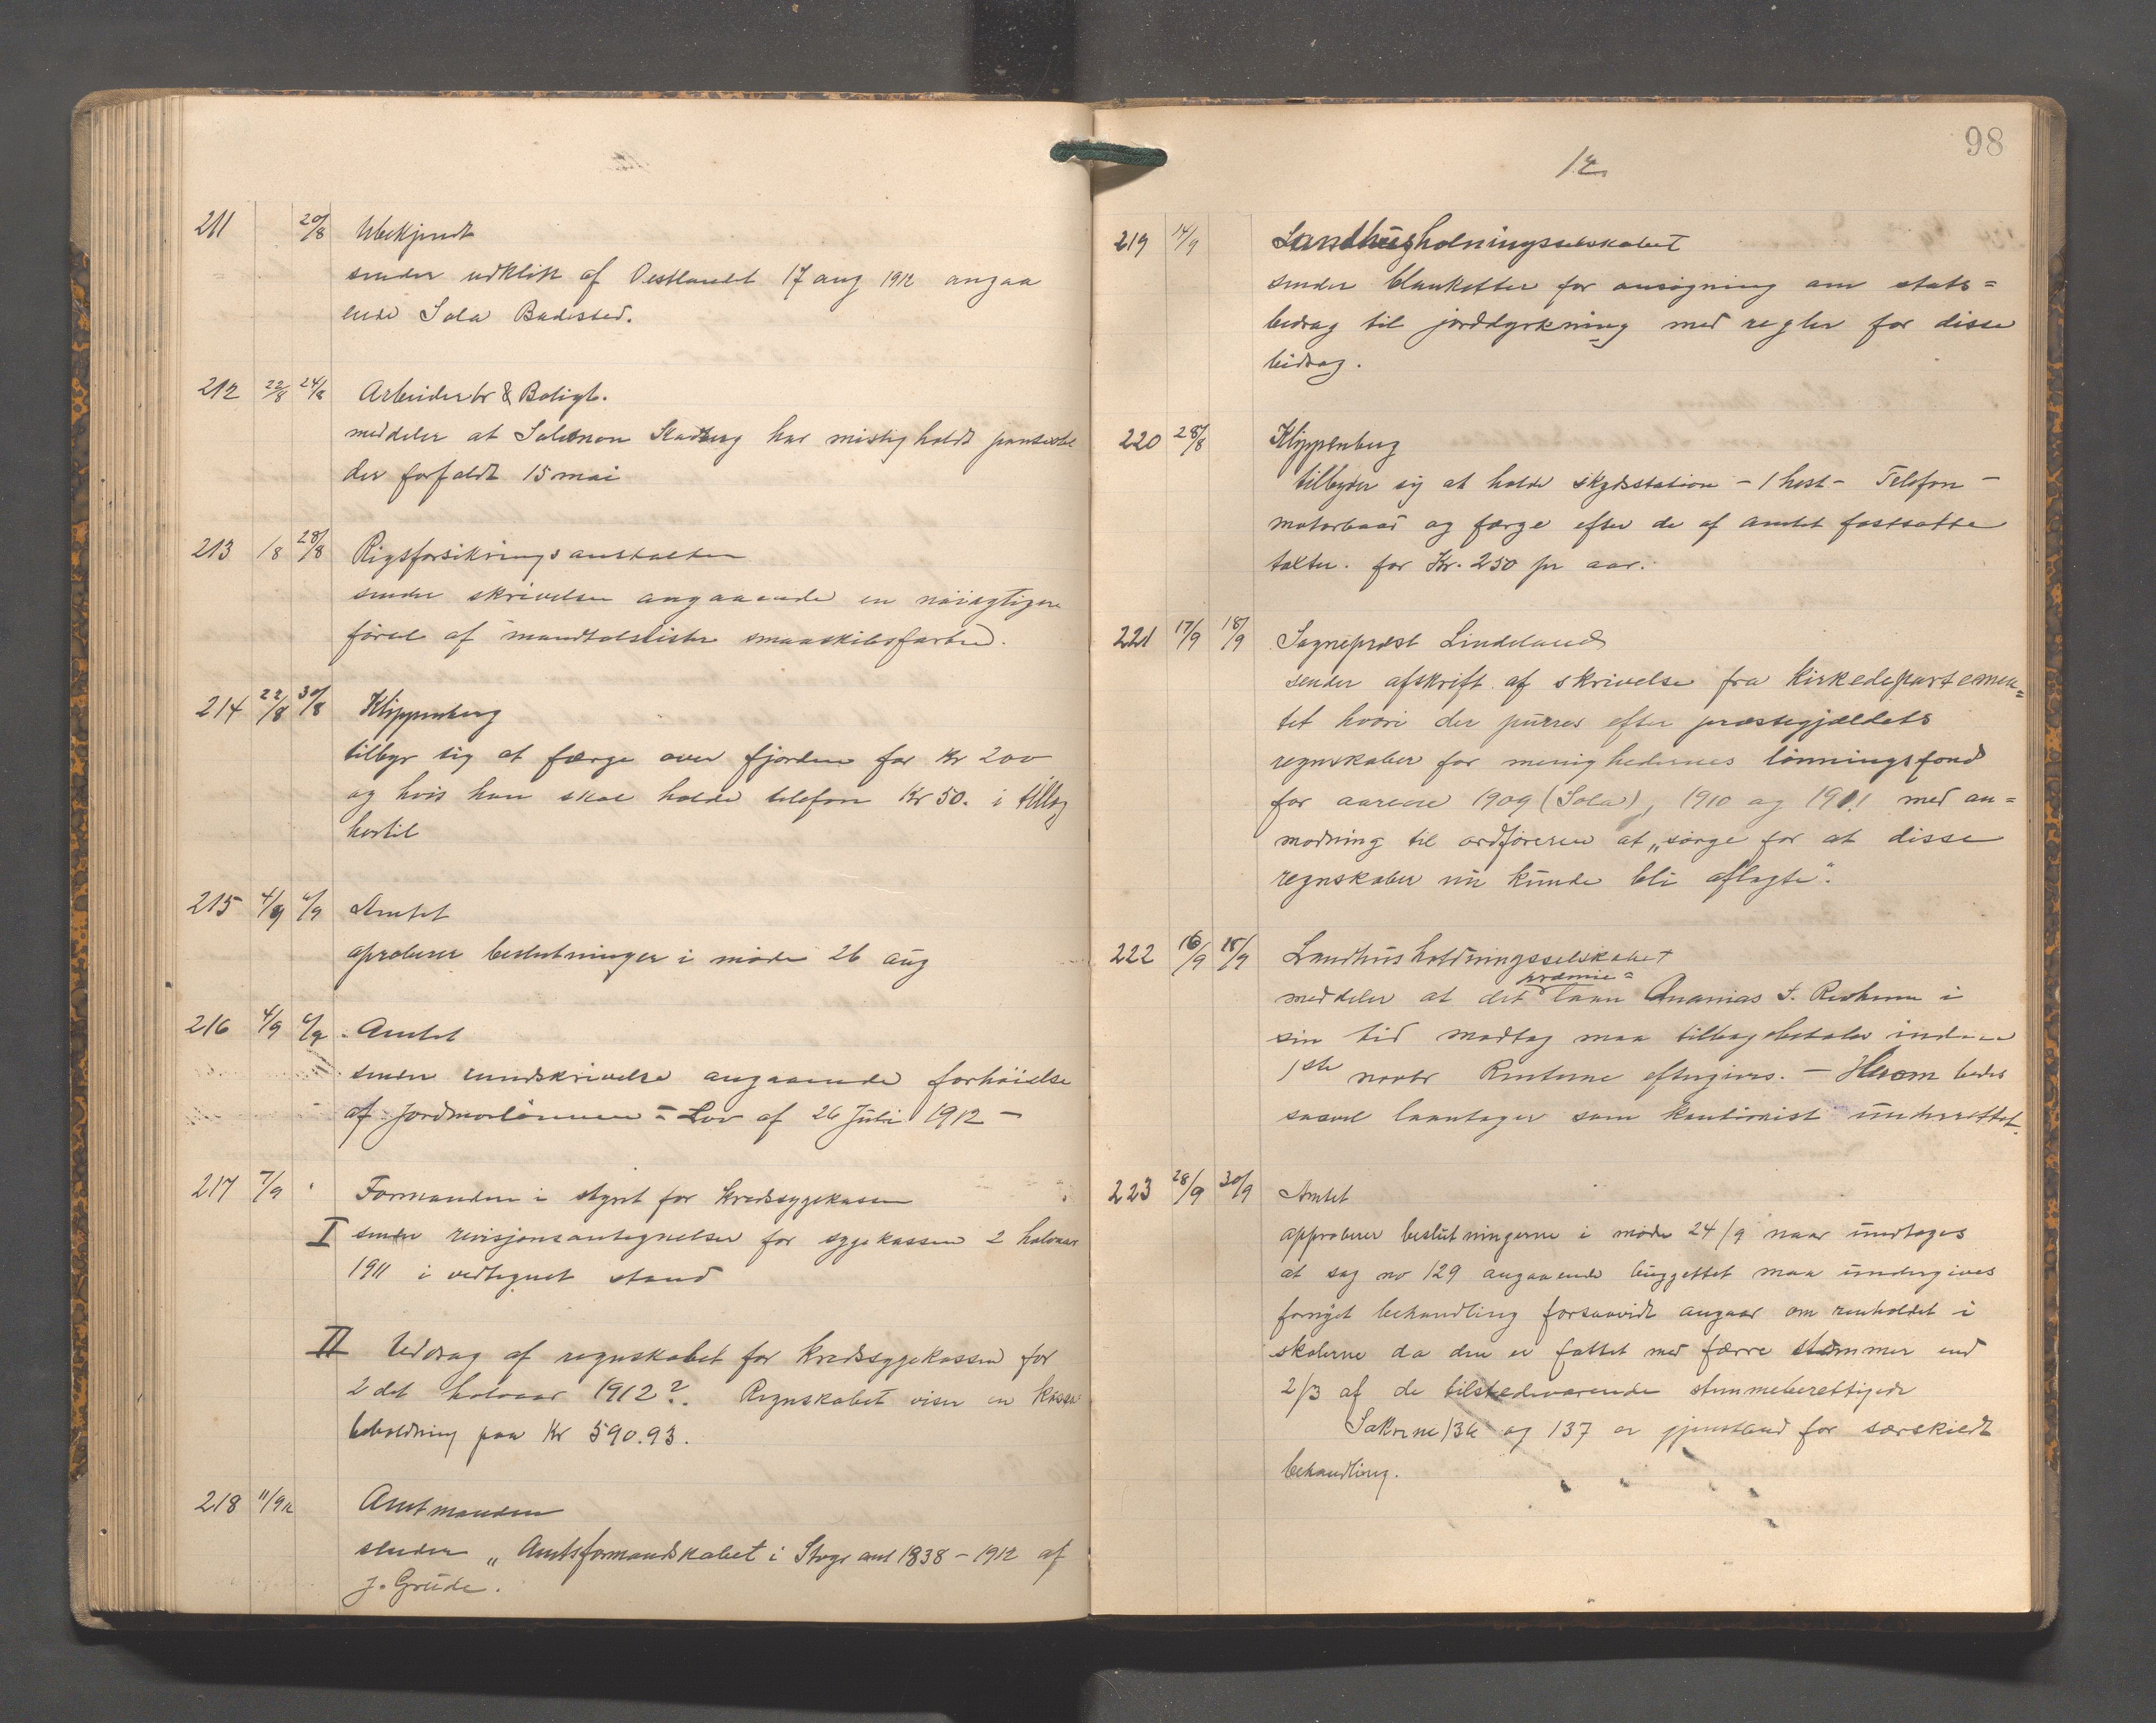 211 20/8 Ubekjendt
sender udklip af Vestlandet 17 aug 1912 angaa
ende Sola Badested.
212 22/8 24/8 Arbeiderbr & Boligb.
meddeler at Salomon har misligholdt
der forfaldt 15 mai
213 /8 28/8 Rigsforsikringsanstalten
sender skrivelse angaaende en nöiagtigere
försel af mandtalslister smaaskibsfarten.
214 22/8 30/8 Klippenberg
tilbyr sig at færge over fjorden for Kr 200
og hvis han skal holde telefon Kr 50. i tillæg
hertil
215 4/9 6/9 Amtet
aproberer beslutninger i møde 26 aug
216 4/9 6/9 Amtet
sender rundskrivelse angaaende forhöielse
af Jordmorlönnen = Lov af 26 Juli 1912 —
217 7/9 Formanden i styret for Kredssygekassen
I sender revisjonsantegnelser for sygekassen 2 halvaar
1911 i vedtegnet stand
II Uddrag af regnskabet for Kredssygekassen for
2det halvaar 1912?. Regnskabet viser en kasse=
beholdning paa Kr 590.93.
218 11/9 12 Amtmanden
sender „Amtsformandskabet i Stvgr amt 1838 – 1912 af
J. Grude.
98
12
219 14/9 Landhusholningsselskabet
sender blanketter for ansögning om stats=
bedrag til jorddyrkning med regler for disse
bidrag.
220 28/8 Klippenberg
tilbyder sig at holde skydsstation – 1 hest – Telefon –
motorbaad og færge efter de af amtet fastsatte
takter. for Kr. 250 pr aar.
221 17/9 18/9 Sogneprest Lindeland
sender afskrift af skrivelse fra Kirkedepartemen=
tet hvori der purres efter præstegjældets
regnskaber for menighedernes lönningsfond
for aarene 1909 (Sola), 1910 og 1911 med an=
modning til ordföreren at „sörge for at disse
regnskaber nu kunde bli aflagte".
222 16/9 18/9 Landhusholdningsselskabet
præmie=
meddeler at det laan Ananias S. i
sin tid modtog maa tilbagebetales inden
1ste novbr Renterne eftergives. – Herom bedes
saavel laantager som kautionist underrettet.
223 28/9 30/9 Amtet
approberer beslutningerne i møde 24/9 naar undtages
at sag no 129 angaaende buggettet maa undergives
fornyet behandling forsaavidt angaar om renholdet i
skolerne da den er fattet med færre stemmer end
2/3 af de tilstedeværende stemmeberettigede
Sakerne 136 og 137 er gjenstand for særskildt
behandling.